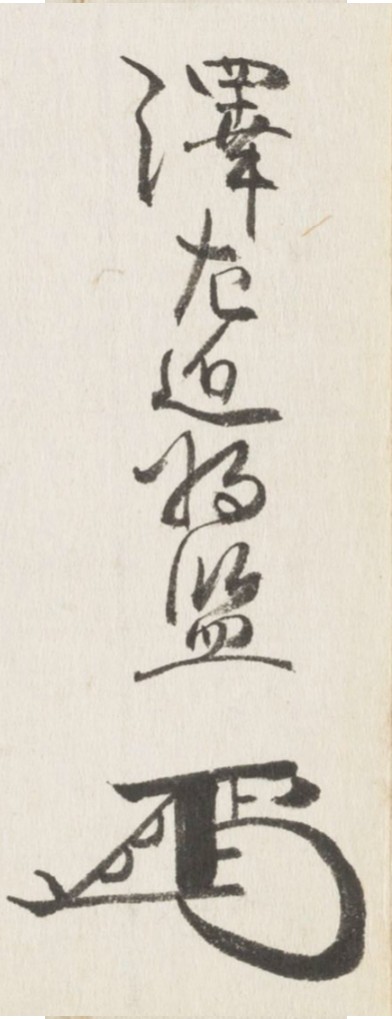 澤左近将監